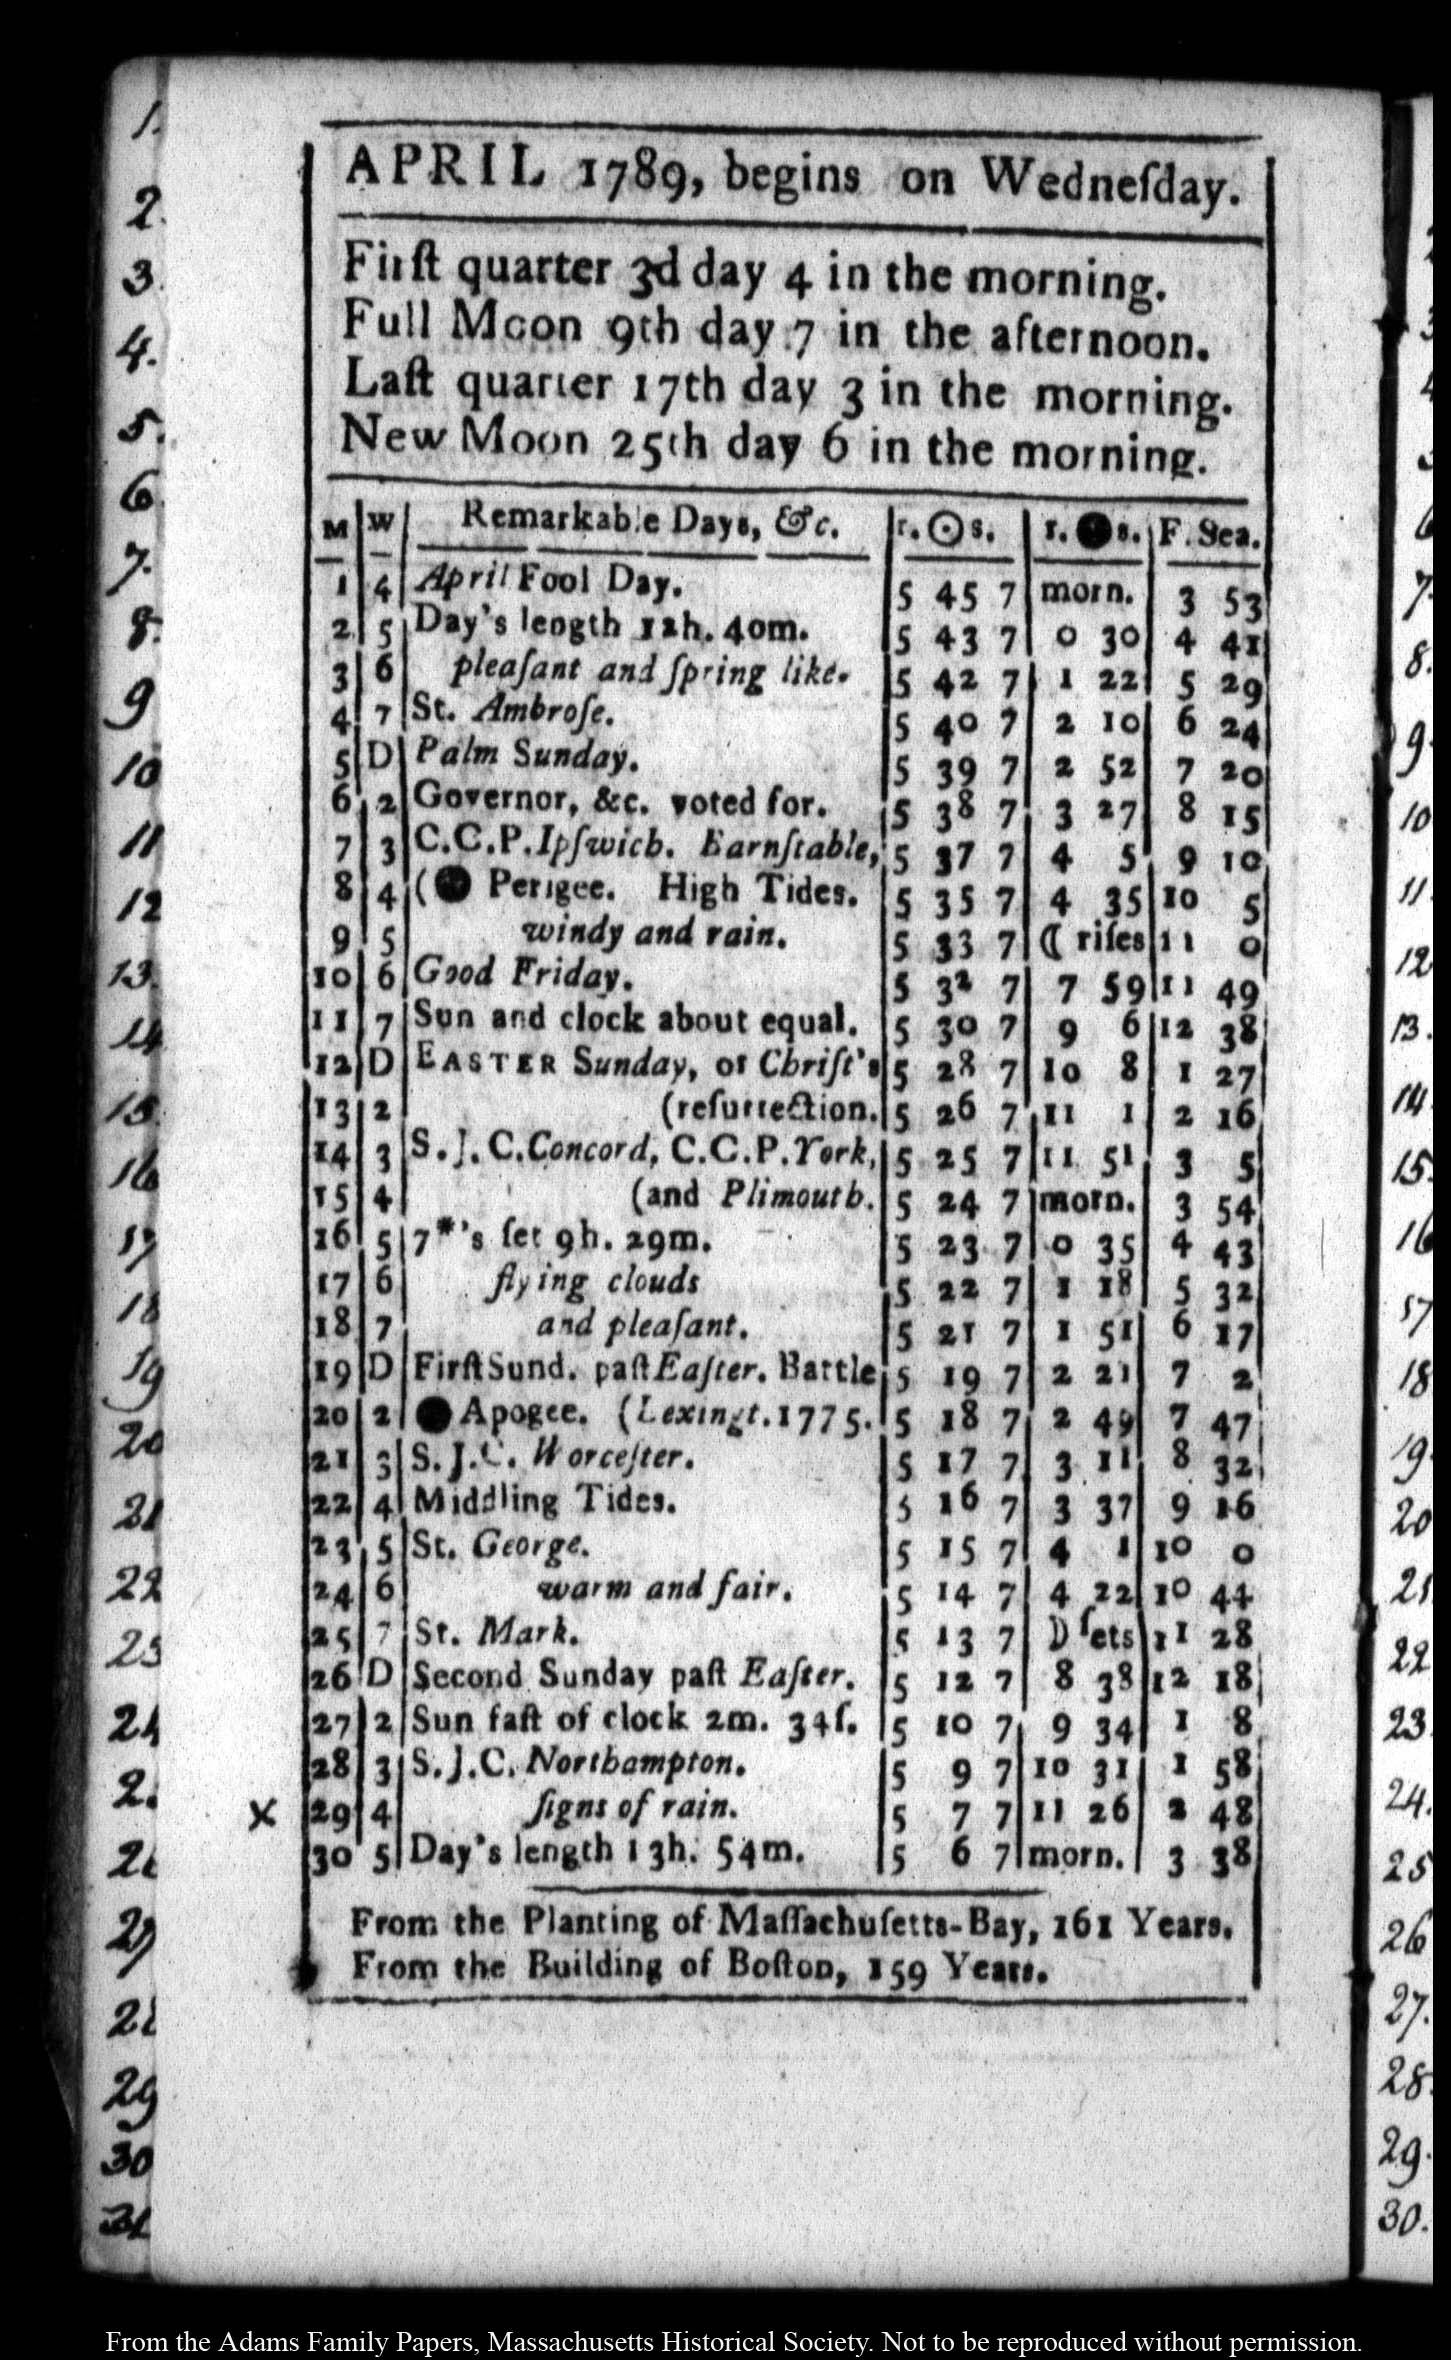 APRIL 1789, begins on Wedneſday.
Firſt quarter 3d day 4 in the morning.
Full Moon 9th day 7 in the afternoon.
Laſt quarter 17th day 3 in the morning.
New Moon 25th day 6 in the morning.
M W Remarkable Days, &c. r. ☉ s. r. ● s. F. Sea.
1 4 April Fool Day. 5 45 7 morn. 3 53
2 5 Day's length 12h. 40m. 5 43 7 0 30 4 41
3 6 pleaſant and ſpring like. 5 42 7 1 22 5 29
4 7 St. Ambroſe. 5 40 7 2 10 6 24
5 D Palm Sunday. 5 39 7 2 52 7 20
6 2 Governor, &c. voted for. 5 38 7 3 27 8 15
7 3 C.C.P. Ipſwich. Barnſtable, 5 37 7 4 5 9 10
8 4 (● Perigee. High Tides. 5 35 7 4 35 10 5
9 5 windy and rain. 5 33 7 ☾ riſes 11 0
10 6 Good Friday. 5 32 7 7 59 11 49
11 7 Sun and clock about equal. 5 30 7 9 6 12 38
12 D EASTER Sunday, or Chriſt's 5 28 7 10 8 1 27
13 2 (reſurrection. 5 26 7 11 1 2 16
14 3 S.J.C. Concord, C.C.P. York, 5 25 7 11 51 3 5
15 4 (and Plimouth. 5 24 7 morn. 3 54
16 5 7*'s ſet 9h. 29m. 5 23 7 0 35 4 43
17 6 flying clouds 5 22 7 1 18 5 32
18 7 and pleaſant. 5 21 7 1 51 6 17
19 D Firſt Sund. paſt Eaſter. Battle 5 19 7 2 21 7 2
20 2 ● Apogee. (Lexingt. 1775. 5 18 7 2 49 7 47
21 3 S.J.C. Worceſter. 5 17 7 3 11 8 32
22 4 Middling Tides. 5 16 7 3 37 9 16
23 5 St. George. 5 15 7 4 1 10 0
24 6 warm and fair. 5 14 7 4 22 10 44
25 7 St. Mark. 5 13 7 ☽ ſets 11 28
26 D Second Sunday paſt Eaſter. 5 12 7 8 38 12 18
27 2 Sun faſt of clock 2m. 34ſ. 5 10 7 9 34 1 8
28 3 S.J.C. Northampton. 5 9 7 10 31 1 58
x 29 4 ſigns of rain. 5 7 7 11 26 2 48
30 5 Day's length 13h. 54m. 5 6 7 morn. 3 38
From the Planting of Maſſachuſetts-Bay, 161 Years.
From the Building of Boſton, 159 Years.
1.
2.
3.
4.
5.
6.
7.
8.
9
10
11
12
13.
14
15.
16
17
18
19
20
21
22
23
29
30
31
7.
8.
9.
10
11.
12
13.
14.
15.
16
17
18
19.
20
21
22.
23.
24.
25
26
27.
28.
29.
30.
From the Adams Family Papers, Massachusetts Historical Society. Not to be reproduced without permission.